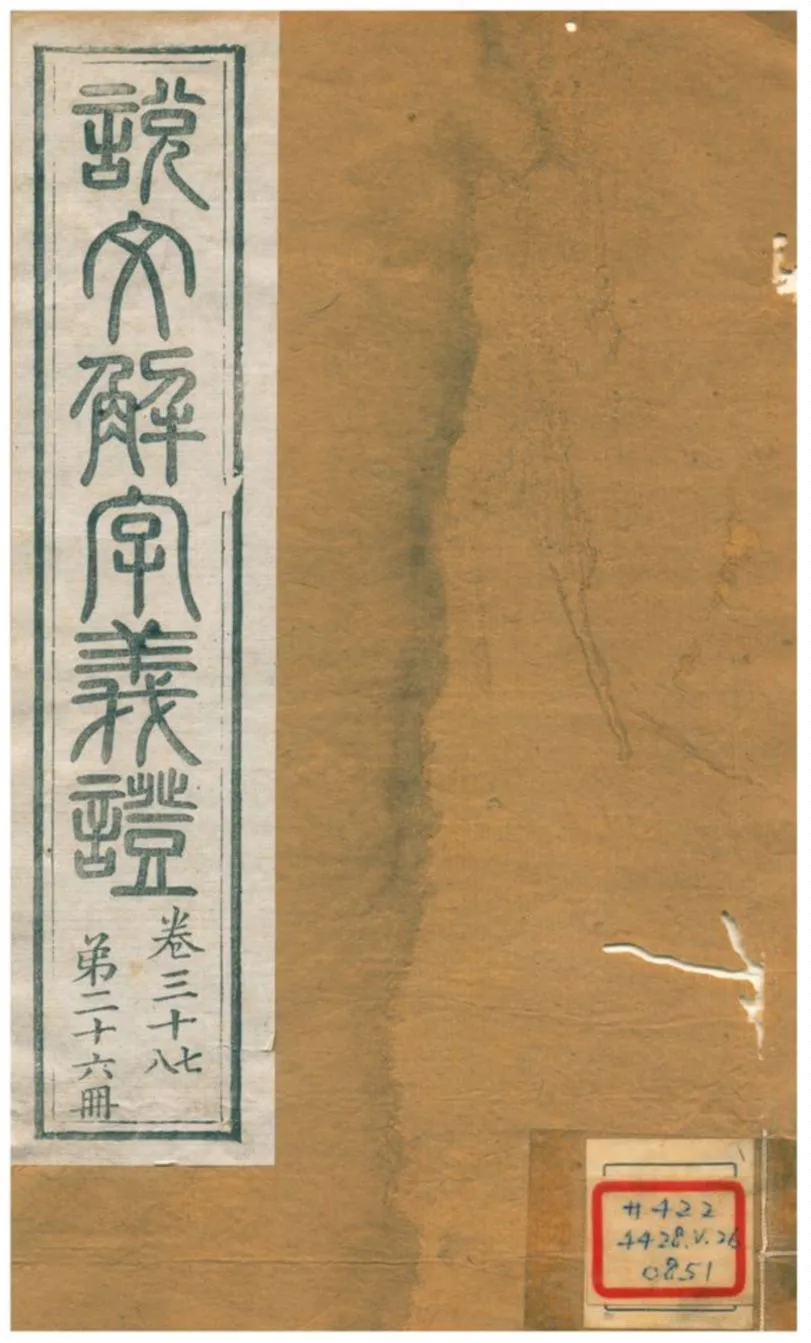 說文解字義證
卷三十七八
弟二十六冊
#422
4428.V.26
0851